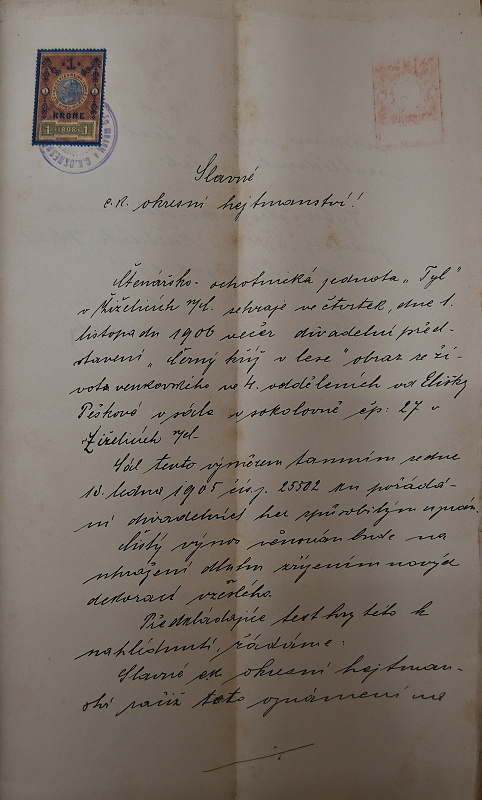 KRONE
1 1898 1
Slavné
c.k. okresní hejtmanství!
Čtenářsko-ochotnická jednota „Tyl"
v Žiželicích n/L. sehraje ve čtvrtek, dne 1.
listopadu 1906 večer divadelní před-
stavení „Černý kříž v lese" obraz ze ži-
vota venkovského ve 4. odděleních od Elišky
Peškové v sále v sokolovně čp: 27 v
Žiželicích n/L.
Sál tento výměrem tamním ze dne
13. ledna 1905 čís. 25502 ku pořádá-
ní divadelních her způsobilým uznán.
Čistý výnos věnován bude na
uhražení dluhu zřízením nových
dekorací vzešlého.
Předkládajíce text hry této k
nahlédnutí, žádáme:
Slavné c.k. okresní hejtman-
ství račiž toto oznámení na